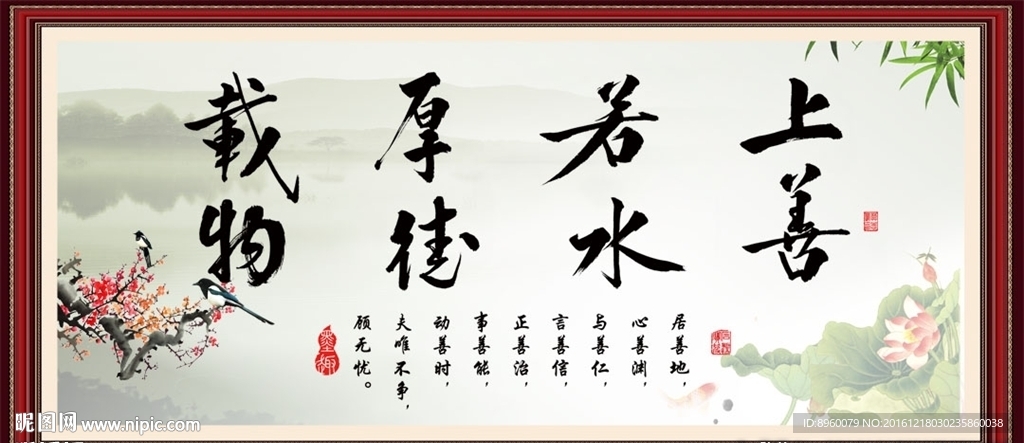 上善
若水
厚德
載物
居善地,
心善渊,
与善仁,
言善信,
正善治,
事善能,
动善时,
夫唯不争,
顾无忧。
昵图网 www.nipic.com
ID:8960079 NO:20161218030235860038